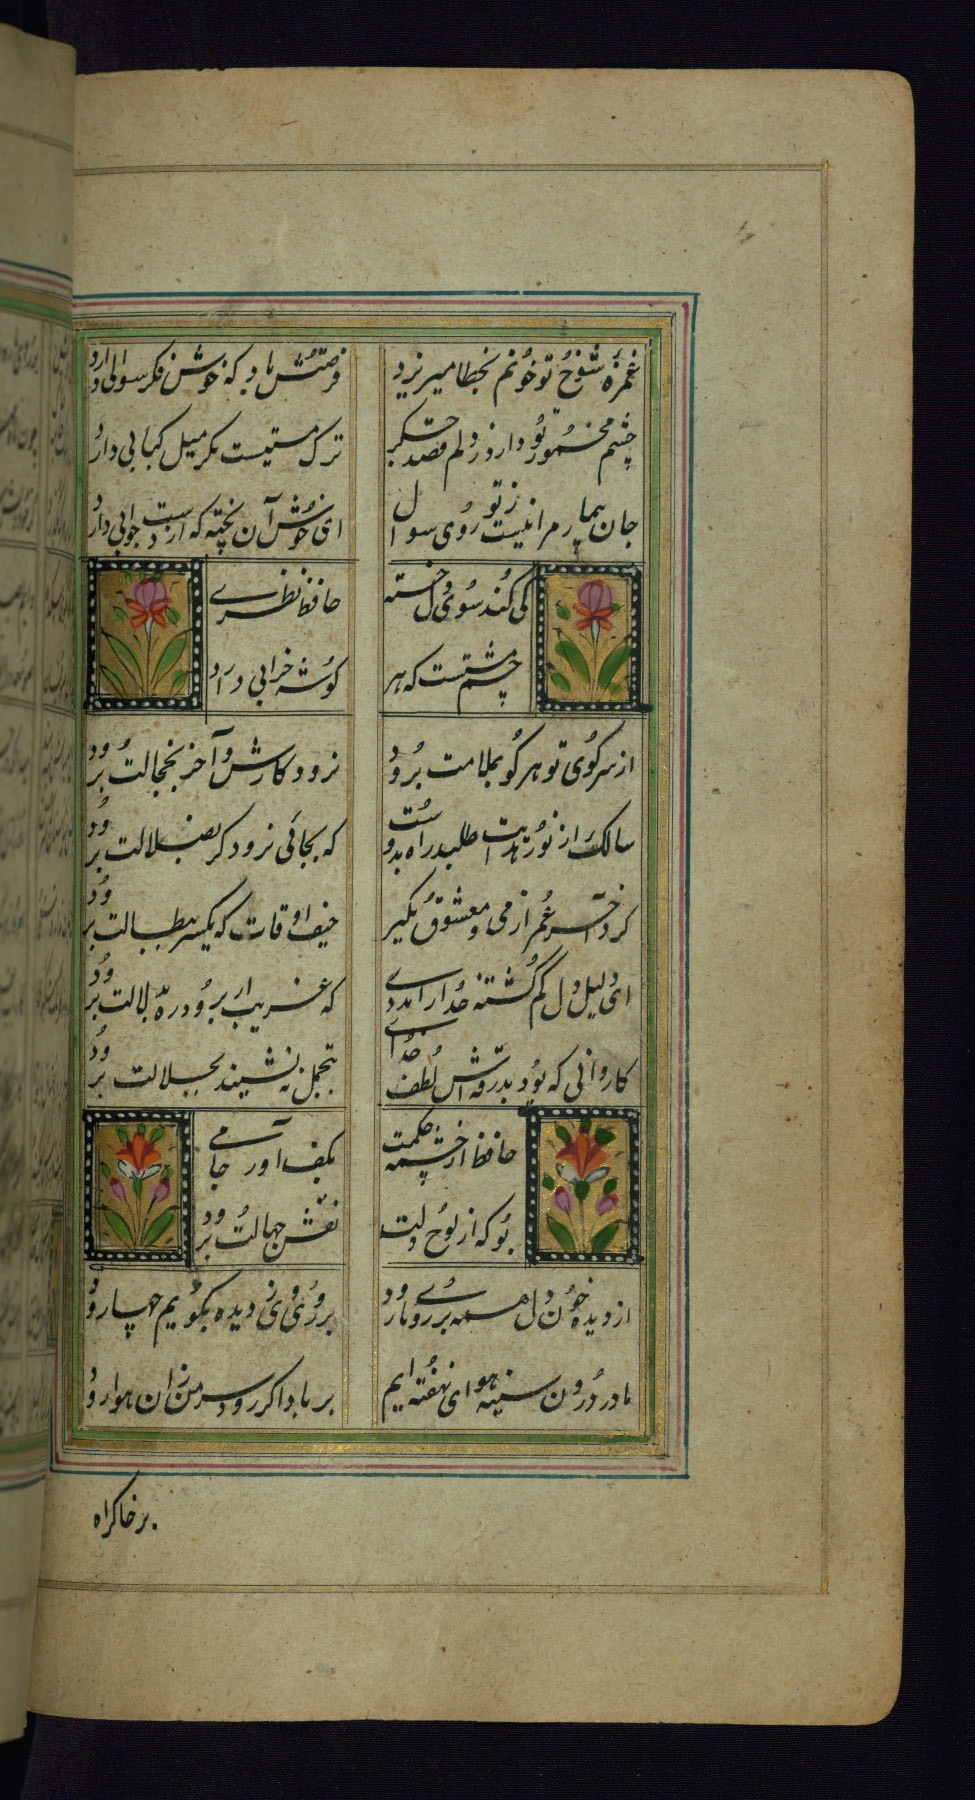 غمزهٔ شوخ تو خونم بخطا میریزد
فرصتش باد که خوش فکر سوالی دارد
چشم مخمور تو دارد ز دلم قصد جگر
ترک مستیست مگر میل کبابی دارد
جان بیمار مرا نیست ز تو روی سوال
ای خوش آن پخته که از دست جوابی دارد
کی کند سوی دل خسته
حافظ نظرے
چشم مستت که هر
گوشه خرابی دارد
از سر کوی تو هر کو بملامت برود
نرود کارش و آخر بخجالت برود
سالک از نور هدایت طلبد راه بدوست
که بجائی نرسد گر بضلالت برود
گرو آخر عمر از می و معشوق بگیر
حیف اوقات که یکسر ببطالت برود
ای دلیل دل گم گشته خدا را مددے
که غریب ار نبرد ره بدلالت برود
کاروانی که بود بدرقه‌اش لطف خدای
بتجمل بنشیند بجلالت برود
حافظ از چشمهٔ حکمت
بکف آور جامے
بو که از لوح دلت
نقش جهالت برود
از دیده خون دل همه بر روی ما رود
بر روی ما ز دیده بگویم چها رود
ما در درون سینه هوای نهفته ایم
بر باد اگر رود سر من زان هوا رود
بر خاک راه